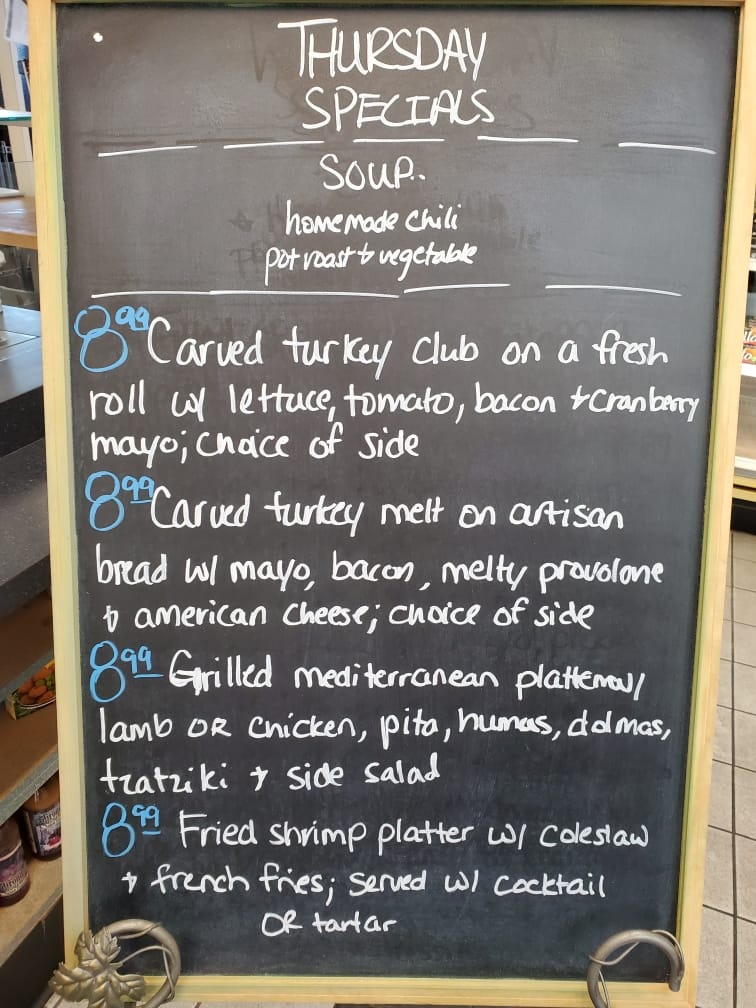 THURSDAY
SPECIALS
SOUP..
homemade chili
pot roast & vegetable
8.99 Carved turkey club on a fresh
roll w/ lettuce, tomato, bacon & cranberry
mayo; choice of side
8.99 Carved turkey melt on artisan
bread w/ mayo, bacon, melty provolone
& american cheese; choice of side
8.99 Grilled mediterranean platter w/
lamb OR chicken, pita, humus, dolmas,
tzatziki & side salad
8.99 Fried shrimp platter w/ coleslaw
& french fries; served w/ cocktail
OR tartar